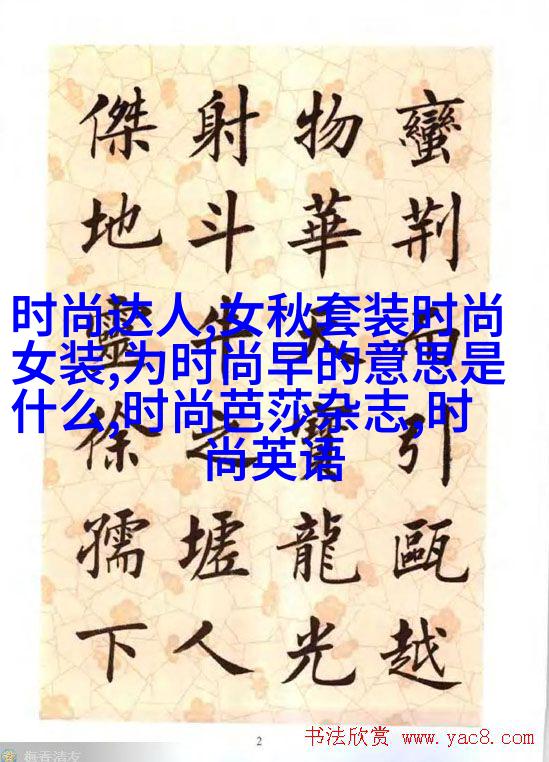 蠻荆而引甌越
物華天寶龍光
射斗牛之墟人
傑地靈徐孺下
时尚达人,女秋套装时尚
女装,为时尚早的意思是
什么,时尚芭莎杂志,时
尚英语
2
书法欣赏 www.yac8.com